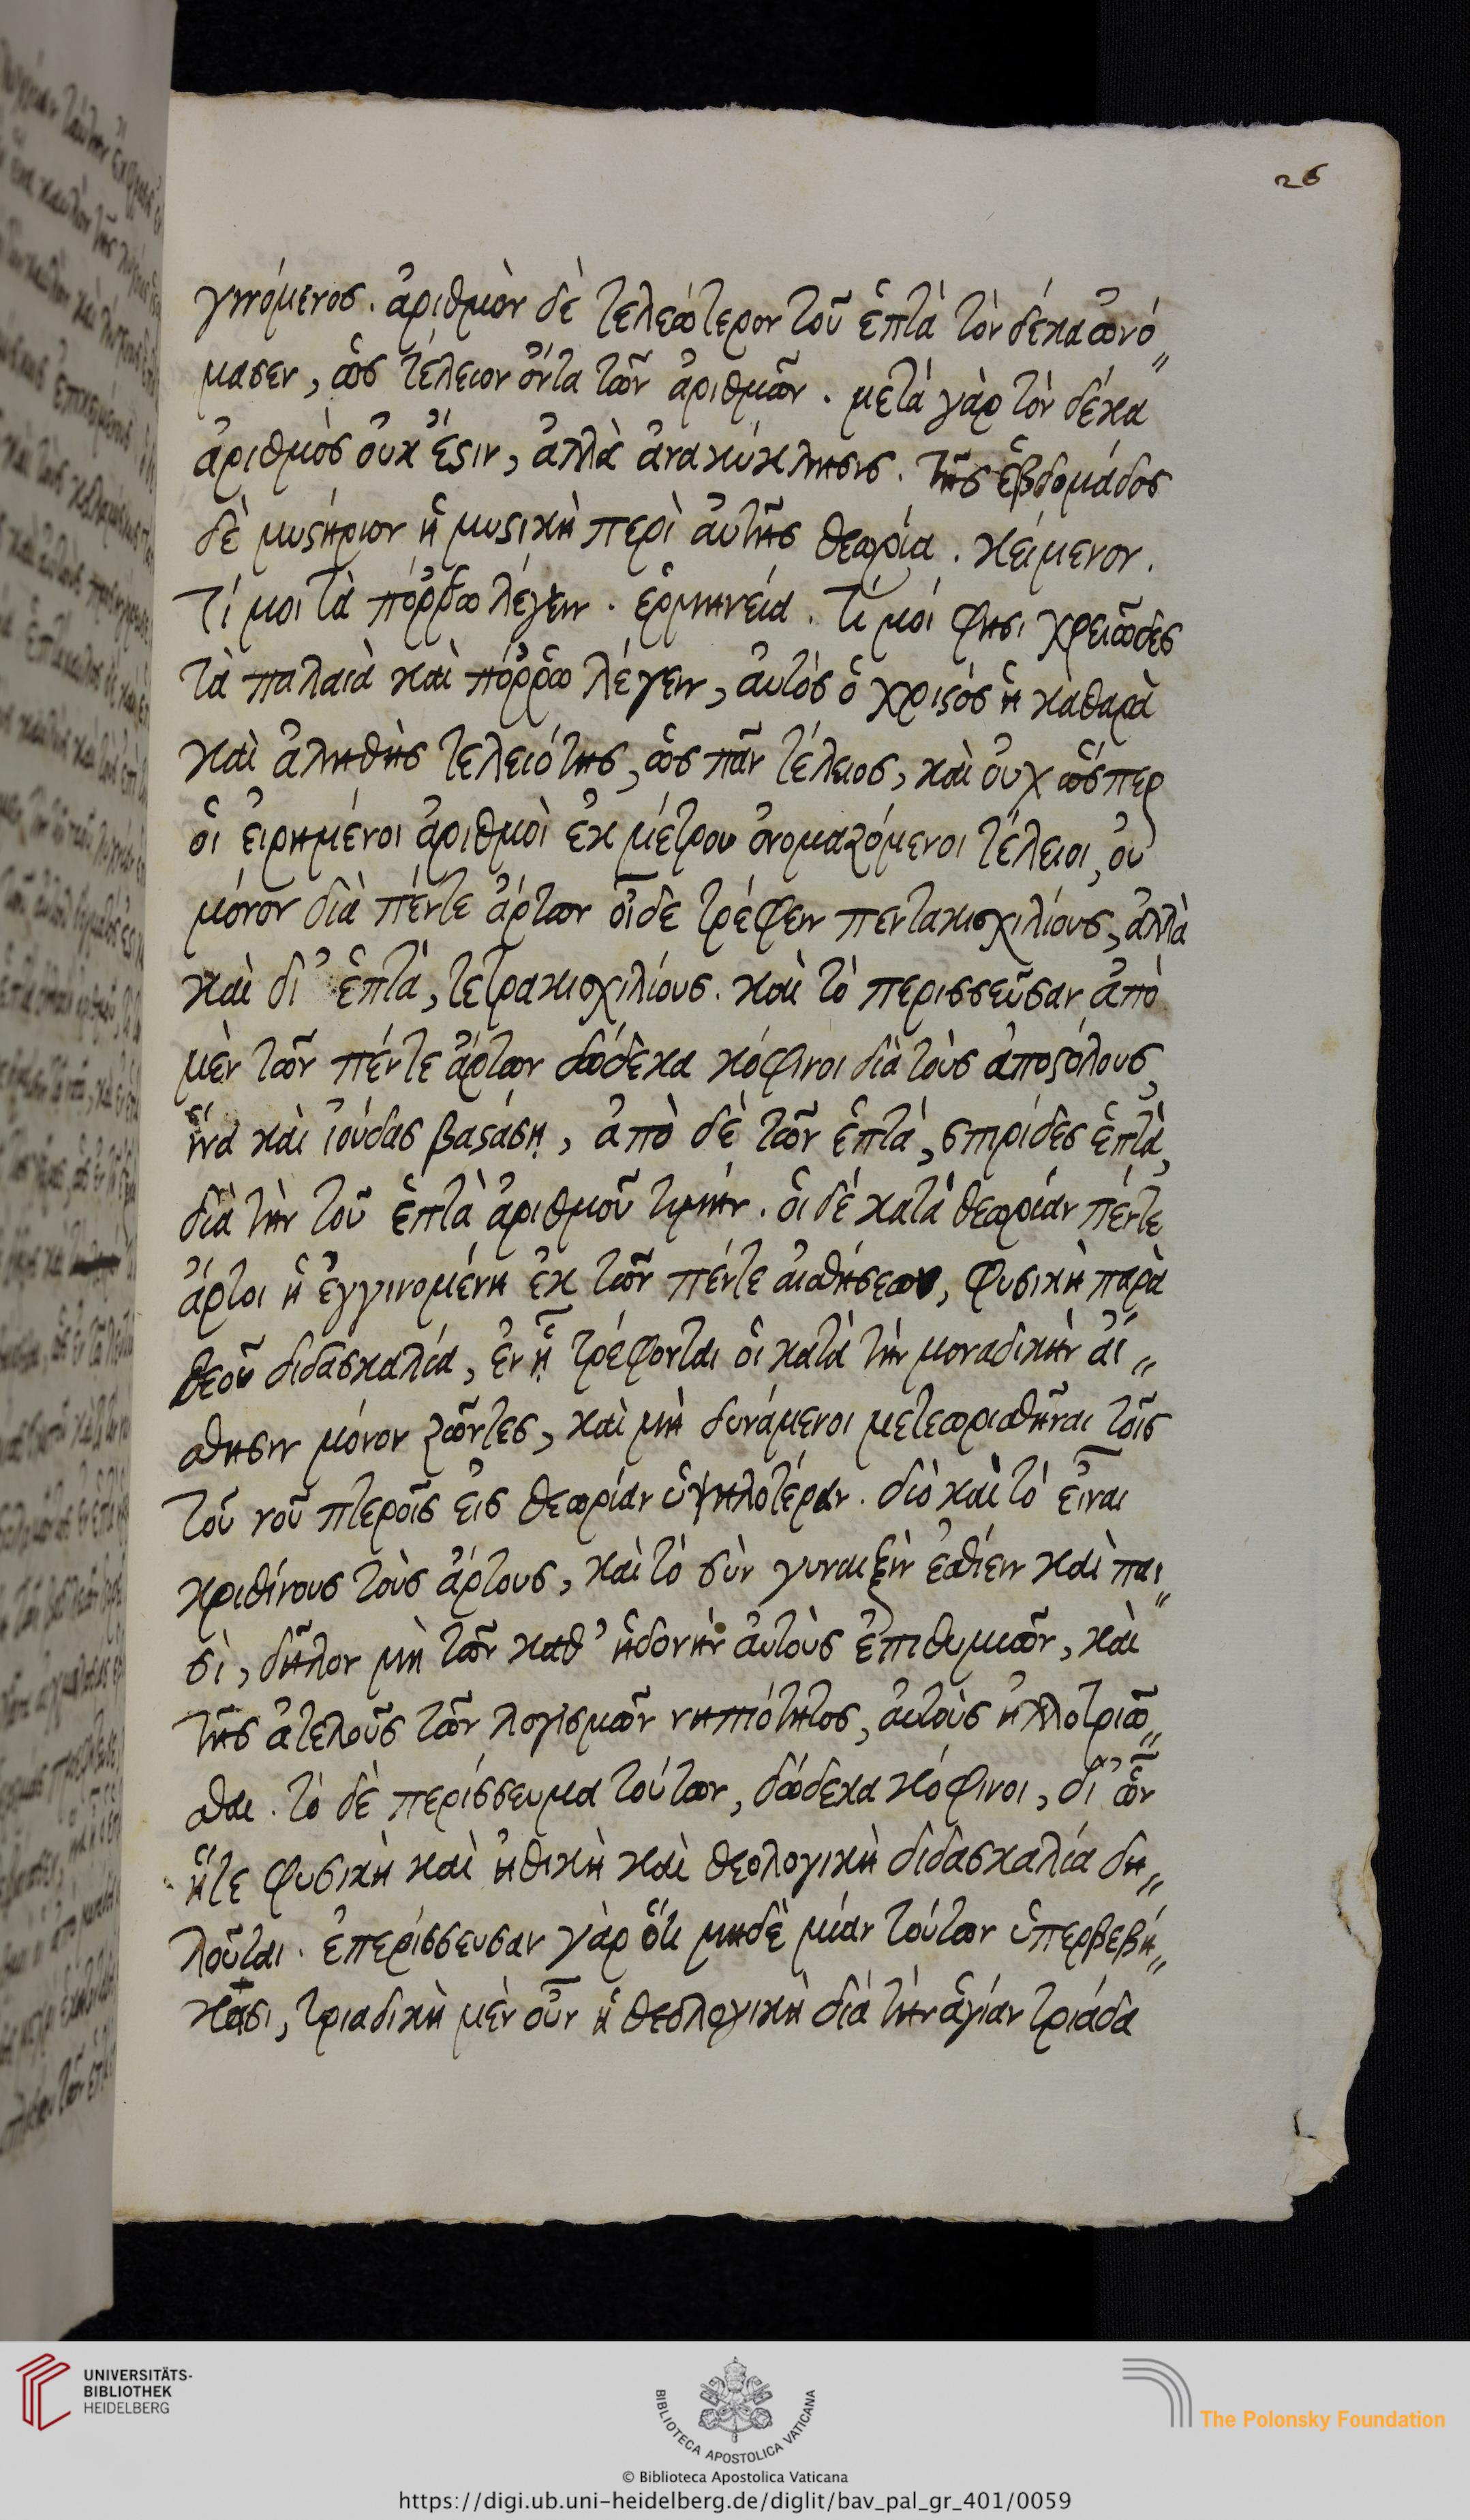 26
γινόμενος. ἀριθμὸν δὲ τελεώτερον τοῦ ἑπτὰ τὸν δέκα ὠνό〃
μασεν, ὡς τέλειον ὄντα τῶν ἀριθμῶν. μετὰ γὰρ τὸν δέκα
ἀριθμὸς οὐκ ἔϛιν, ἀλλὰ ἀνακύκλησις. τῆς ἑβδομάδος
δὲ μυϛήριον ἡ μυϛικὴ περὶ αὐτῆς θεωρία. κείμενον.
Τί μοι τὰ πόῤῥω λέγειν. ἑρμηνεία. τί μοί φησι χρειῶδες
τὰ παλαιὰ καὶ πόῤῥω λέγειν, αὐτὸς ὁ χριϛὸς ἡ καθαρὰ
καὶ ἀληθὴς τελειότης, ὡς πᾶν τέλειος, καὶ οὐχ ὥσπερ
οἱ εἰρημένοι ἀριθμοὶ ἐκ μέτρου ὀνομαζόμενοι τέλειοι, οὐ
μόνον διὰ πέντε ἄρτων οἶδε τρέφειν πεντακισχιλίους, ἀλλὰ
καὶ δι' ἑπτὰ, τετρακισχιλίους. καὶ τὸ περισσεῦσαν ἀπὸ
μὲν τῶν πέντε ἄρτων δώδεκα κόφινοι διὰ τοὺς ἀποϛόλους,
ἵνα καὶ ἰούδας βαϛάσῃ, ἀπὸ δὲ τῶν ἑπτὰ, σπιρίδες ἑπτὰ,
διὰ τὴν τοῦ ἑπτὰ ἀριθμοῦ τιμήν. οἱ δὲ κατὰ θεωρίαν πέντε
ἄρτοι ἡ ἐγγινομένη ἐκ τῶν πέντε αἰσθήσεων, φυσικὴ παρὰ
θεοῦ διδασκαλία, ἐν ᾗ τρέφονται οἱ κατὰ τὴν μοναδικὴν αἴ〃
σθησιν μόνον ζῶντες, καὶ μὴ δυνάμενοι μετεωρισθῆναι τοῖς
τοῦ νοῦ πτεροῖς εἰς θεωρίαν ὑψηλοτέραν. διὸ καὶ τὸ εἶναι
κριθίνους τοὺς ἄρτους, καὶ τὸ σὺν γυναιξὶν ἐσθίειν καὶ παι〃
σὶ, δῆλον μὴ τῶν καθ' ἡδονὴν αὐτοὺς ἐπιθυμιῶν, καὶ
τῆς ἀτελοῦς τῶν λογισμῶν νηπιότητος, αὐτοὺς ἠλλοτριῶ〃
σθαι. τὸ δὲ περίσσευμα τούτων, δώδεκα κόφινοι, δι' ὧν
ἥτε φυσικὴ καὶ ἠθικὴ καὶ θεολογικὴ διδασκαλία δη〃
λοῦται. ἐπερίσσευσαν γὰρ ὅτι μηδὲ μίαν τούτων ὑπερβεβή〃
κασι, τριαδικὴ μὲν οὖν ἡ θεολογικὴ διὰ τὴν ἁγίαν τριάδα
UNIVERSITÄTS-
BIBLIOTHEK
HEIDELBERG
BIBLIOTECA APOSTOLICA VATICANA
The Polonsky Foundation
© Biblioteca Apostolica Vaticana
https://digi.ub.uni-heidelberg.de/diglit/bav_pal_gr_401/0059